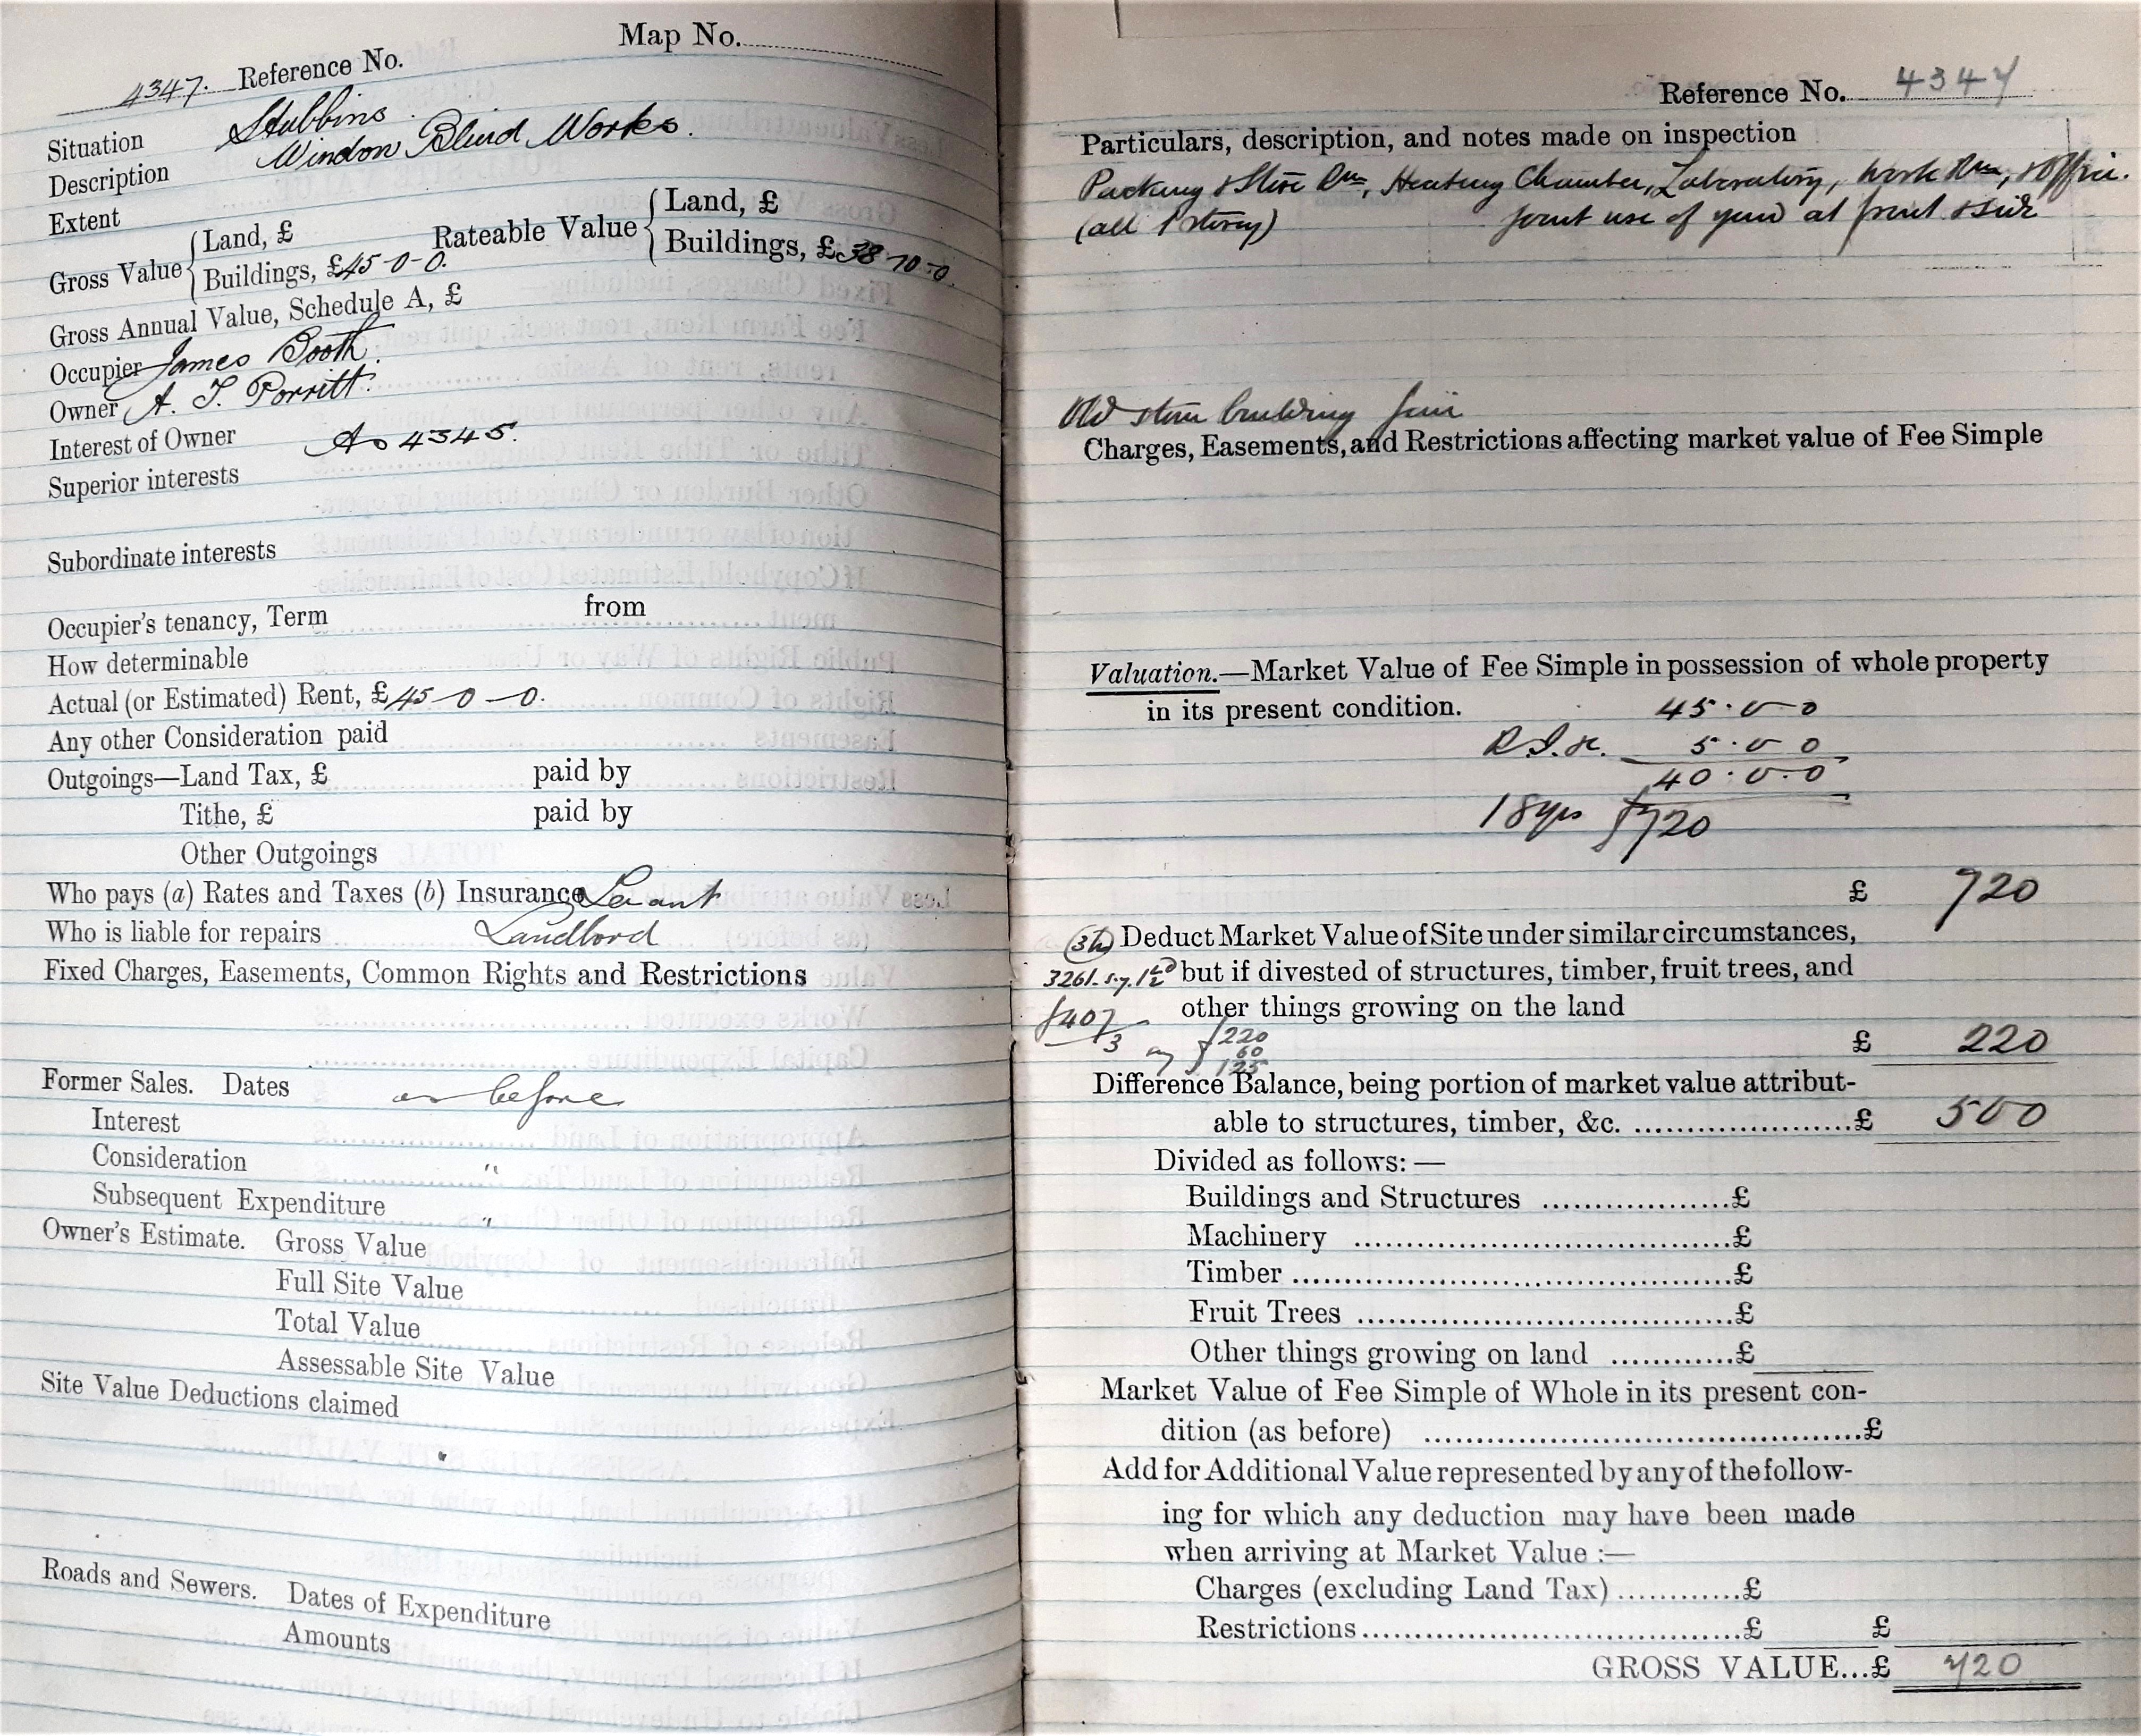 Map No.
4347. Reference No.
Situation Stubbins
Description Window Blind Works.
Extent
Gross Value { Land, £ Rateable Value { Land, £
Buildings, £45-0-0. Buildings, £38-10-0
Gross Annual Value, Schedule A, £
Occupier James Booth.
Owner A. T. Porritt.
Interest of Owner As 4345.
Superior interests
Subordinate interests
Occupier's tenancy, Term from
How determinable
Actual (or Estimated) Rent, £45-0-0.
Any other Consideration paid
Outgoings—Land Tax, £ paid by
Tithe, £ paid by
Other Outgoings
Who pays (a) Rates and Taxes (b) Insurance Tenant
Who is liable for repairs Landlord
Fixed Charges, Easements, Common Rights and Restrictions
Former Sales. Dates as before
Interest
Consideration "
Subsequent Expenditure "
Owner's Estimate. Gross Value
Full Site Value
Total Value
Assessable Site Value
Site Value Deductions claimed
Roads and Sewers. Dates of Expenditure
Amounts
Reference No. 4347
Particulars, description, and notes made on inspection
Packing & Store Rm, Heating Chamber, Laboratory, Work Rm, & Office.
(all 1 storey) Joint use of yard at front & side
Old stone building fair
Charges, Easements, and Restrictions affecting market value of Fee Simple
Valuation.—Market Value of Fee Simple in possession of whole property
in its present condition. 45.0.0
5.0.0
40.0.0
18 yrs £720
£ 720
Deduct Market Value of Site under similar circumstances,
3261 s.y. but if divested of structures, timber, fruit trees, and
other things growing on the land
£407
3 £220
60
125
£ 220
Difference Balance, being portion of market value attribut-
able to structures, timber, &c. ......................£ 500
Divided as follows:—
Buildings and Structures ...................£
Machinery ......................................£
Timber ............................................£
Fruit Trees ......................................£
Other things growing on land ............£
Market Value of Fee Simple of Whole in its present con-
dition (as before) ............................................£
Add for Additional Value represented by any of the follow-
ing for which any deduction may have been made
when arriving at Market Value :—
Charges (excluding Land Tax) ............£
Restrictions ......................................£ £
GROSS VALUE...£ 720